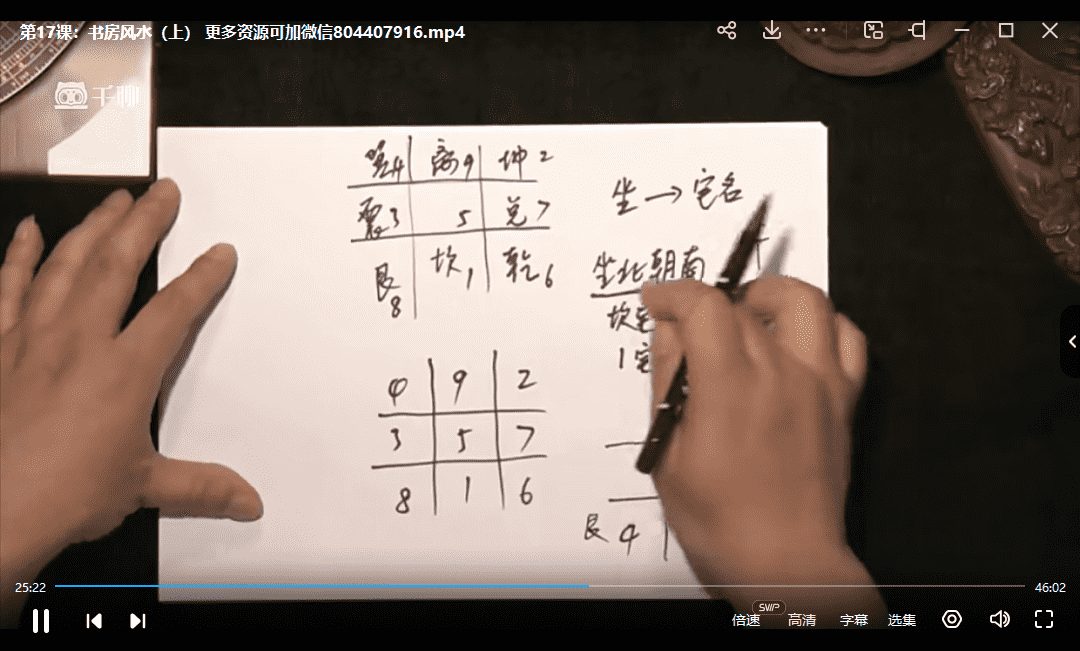 第17课：书房风水（上） 更多资源可加微信804407916.mp4
千聊
巽4 离9 坤2
震3 5 兑7
艮8 坎1 乾6
坐→宅名
坐北朝南
坎宅
1宅
4 9 2
3 5 7
8 1 6
艮 4
25:22
46:02
倍速 SVIP 高清 字幕 选集